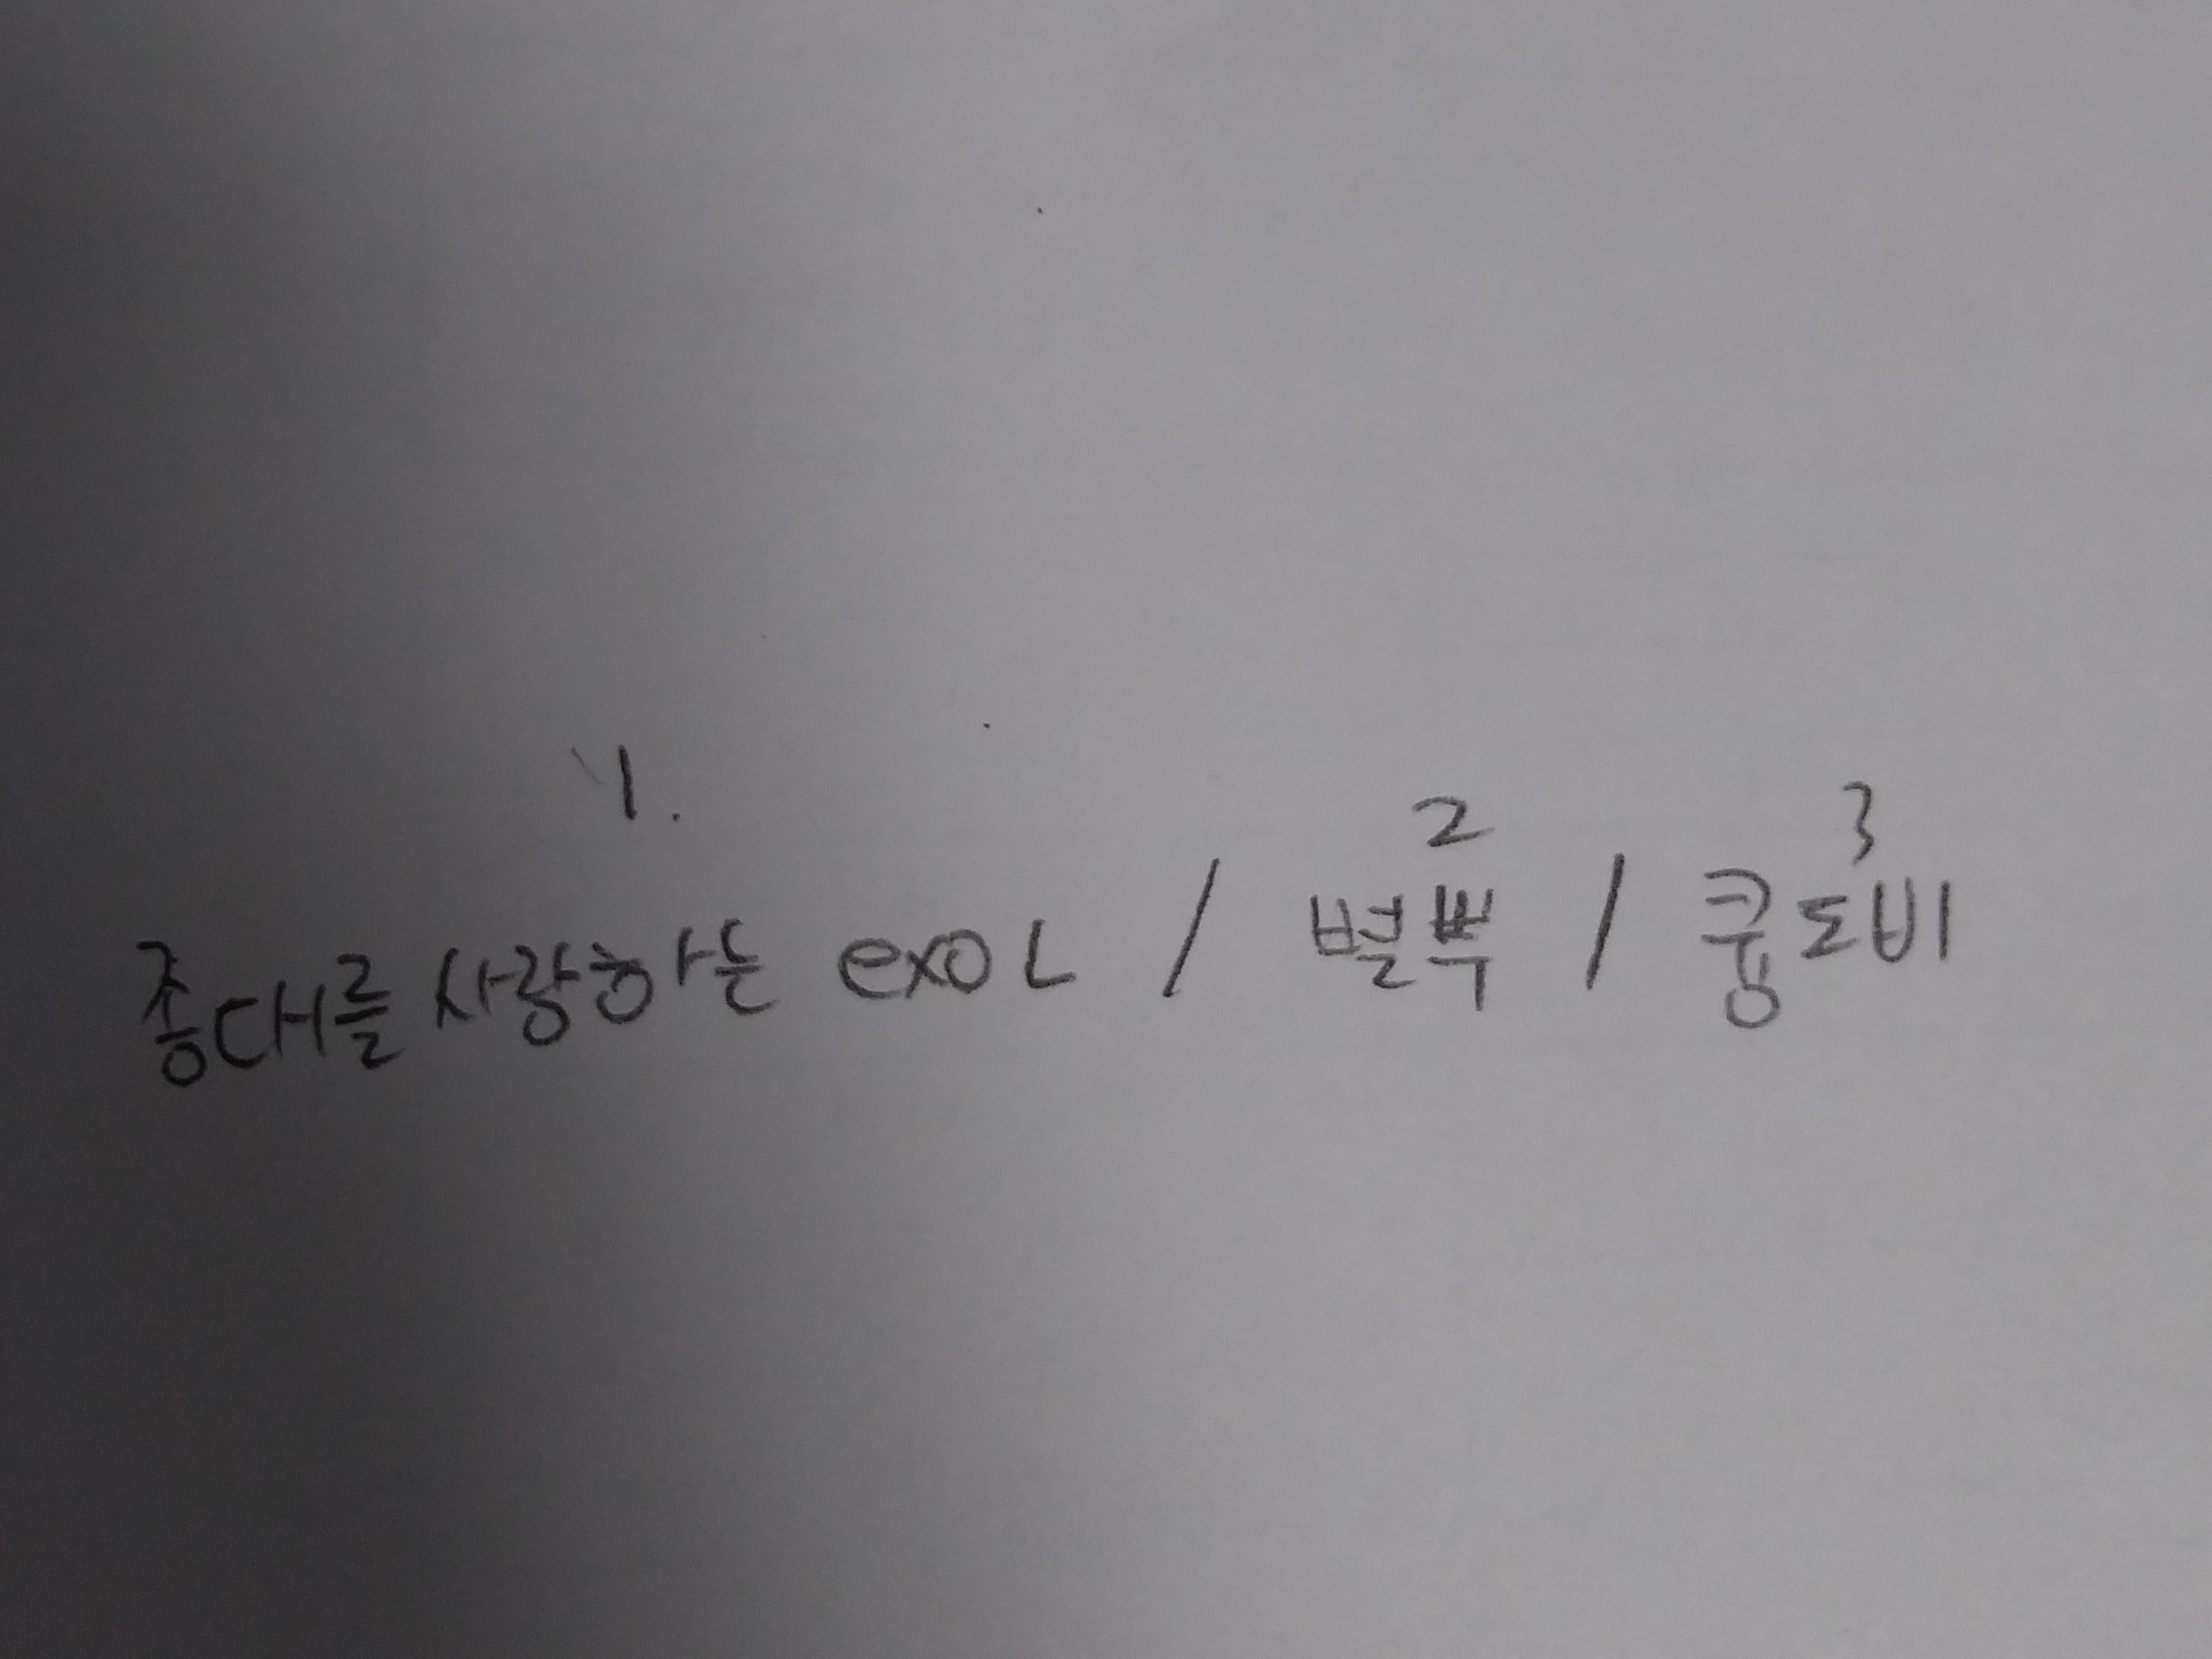 1. 2 3
종대를 사랑하는 exo L / 별뿍 / 쿵도비